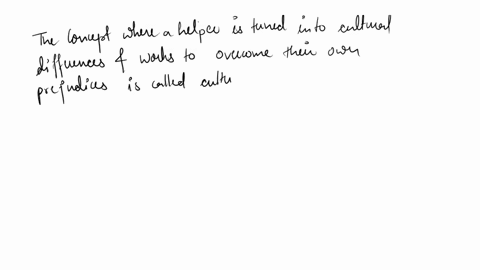 The Concept where a helper is tuned into cultural
differences & works to overcome their own
prejudices is called cultu